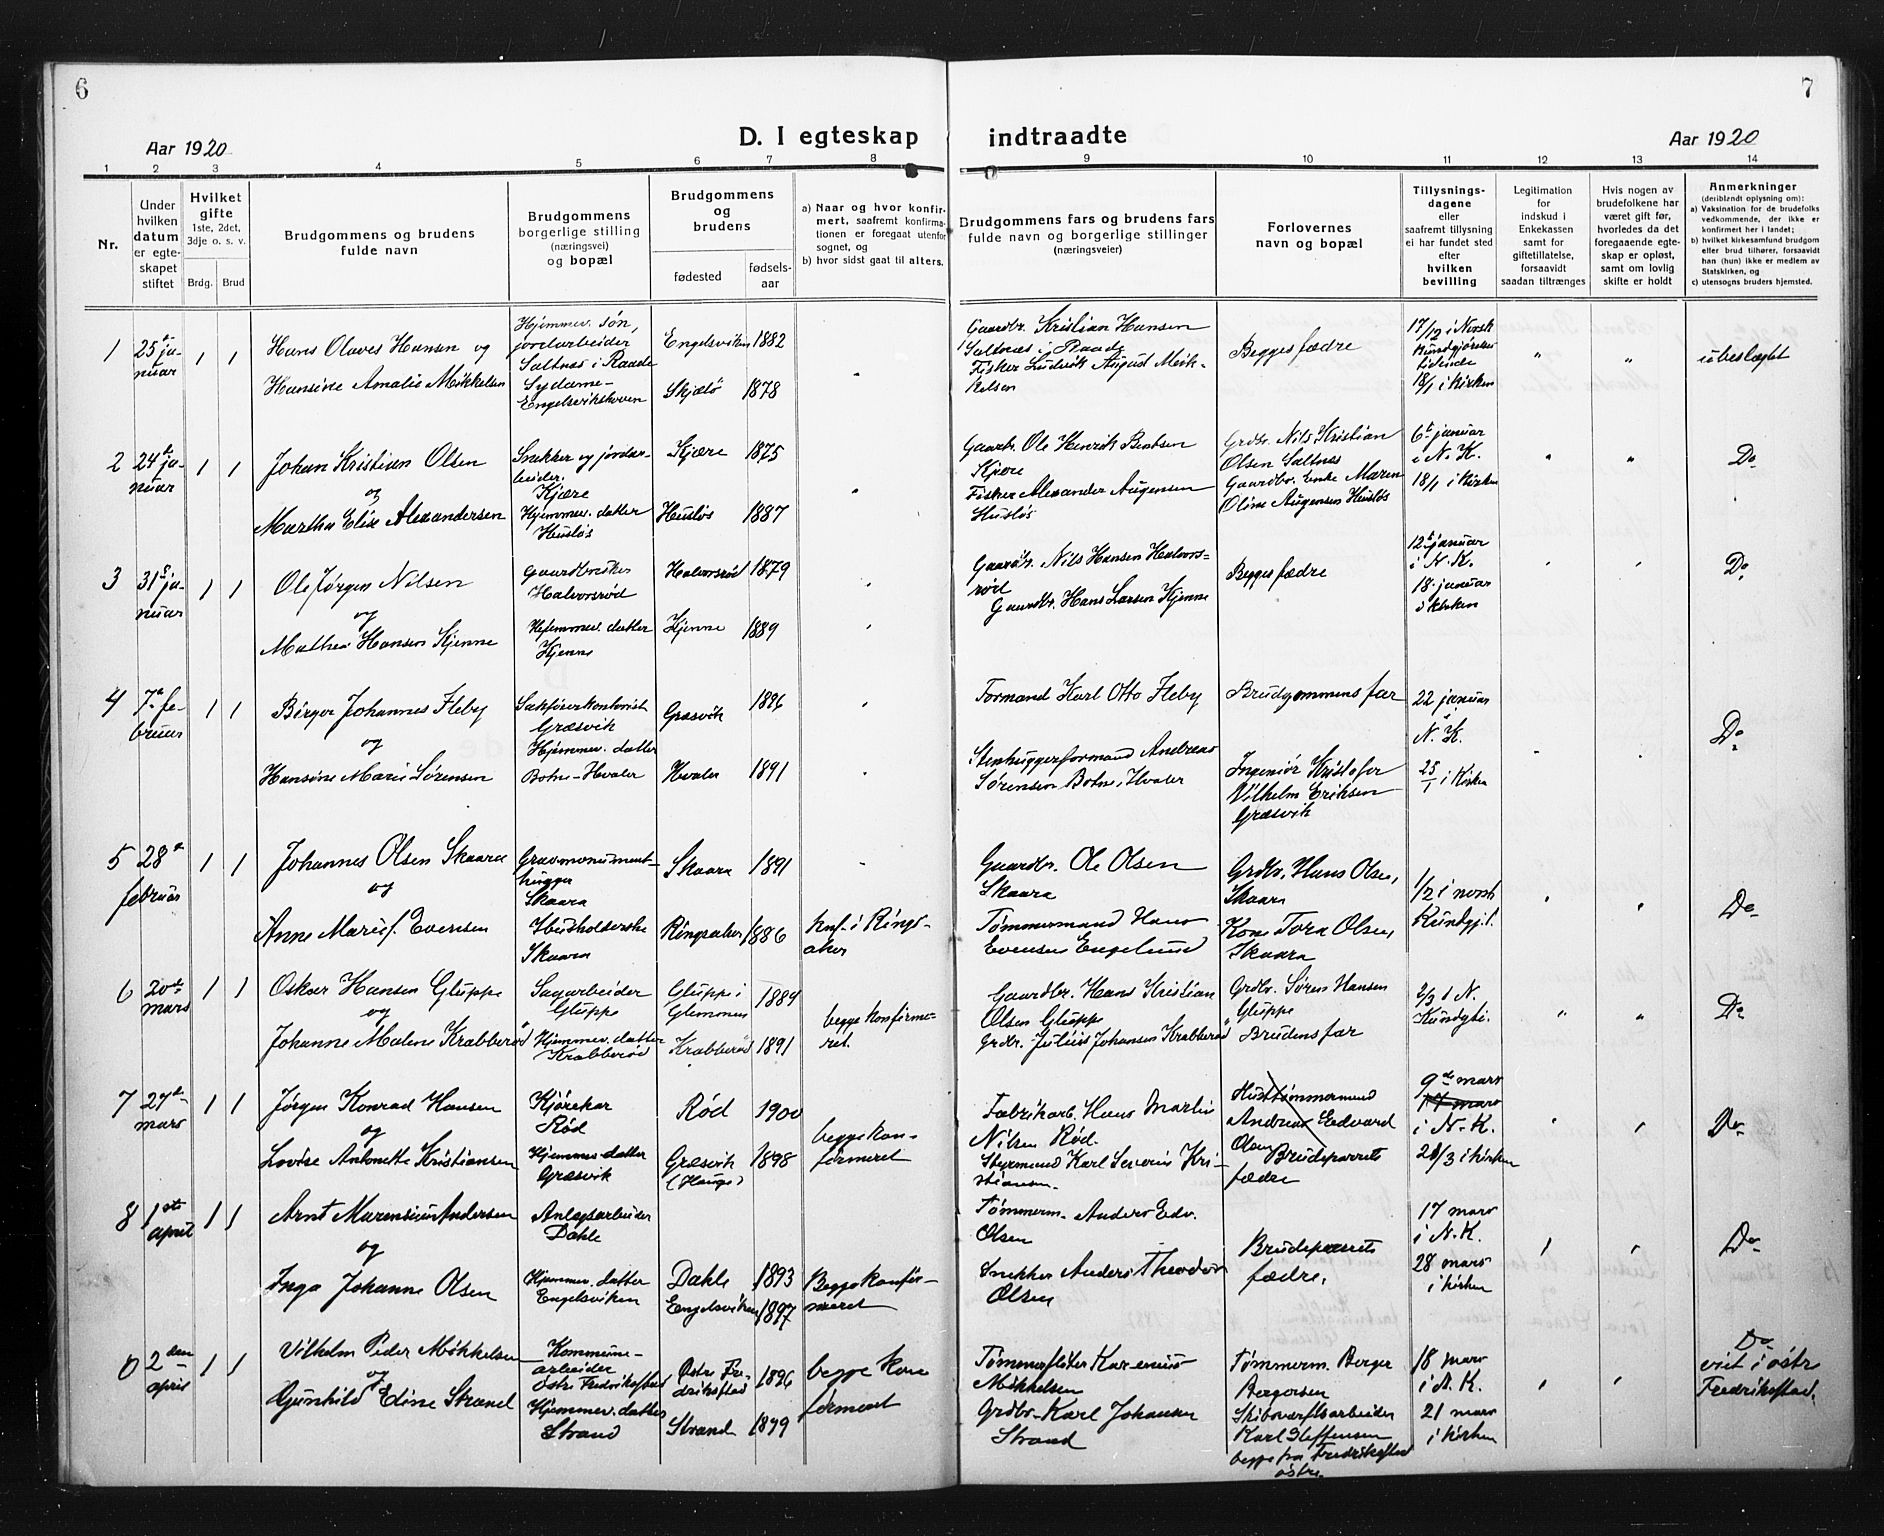 6
Aar 1920
D. I egteskap
1 2 3 4 5 6 7 8
Nr.
Under hvilken datum er egteskapet stiftet
Hvilket gifte 1ste, 2det, 3dje o. s. v.
Brdg. Brud
Brudgommens og brudens fulde navn
Brudgommens borgerlige stilling (næringsvei) og bopæl
Brudgommens og brudens
fødested
fødsels-aar
a) Naar og hvor konfirmert, saafremt konfirmationen er foregaat utenfor sognet, og
b) hvor sidst gaat til alters.
1 25 januar 1 1
Hans Olaves Hansen og
Hjemmev. søn, jordarbeider
Saltnes i Raade
Engelsviken 1882
Hansine Amalie Mikkelsen
Sydame-
Skjælø 1878
2 24 januar 1 1
Johan Kristian Olsen
og
Snekker og jordarbeider.
Kjære
Kjære 1875
Martha Elise Alexandersen
Hjemmev. datter
Husløs
Husløs 1887
3 31 januar 1 1
Ole Jørgen Nilsen
og
Gaardbruker
Halvorsrød
Halvorsrød 1879
Mathea Hansen Kjenne
Hjemmev. datter
Kjenne
Kjenne 1889
4 7 februar 1 1
Birger Johannes Fleby
og
Græsvik
Græsvik 1896
Hansine Marie Sørensen
Hjemmev. datter
Botne-Hvaler
Hvaler 1891
5 28 februar 1 1
Johannes Olsen Skaara
og
Gravmonumenthugger
Skaara
Skaara 1891
Anne Marie J. Evensen
Husholderske
Skaara
Ringsaker 1886
knf. i Ringsaker
6 20de mars 1 1
Oskar Hansen Gluppe
og
Sagarbeider
Gluppe
Gluppe i Glemmen 1884
begge konfirmeret.
Johanne Malene Krabberød
Hjemmev. datter
Krabberød
Krabberød 1891
7 27de mars 1 1
Jørgen Konrad Hansen
og
Kjørekar
Rød
Rød 1900
begge konfirmeret
Lovise Antonette Kristiansen
Hjemmev. datter
Græsvik
Græsvik (Hauge) 1898
8 1ste april 1 1
Arnt Marensius Andersen
og
Anlægsarbeider
Dahle
Dahle 1893
Begge konfirmeret
Inga Johanne Olsen
Hjemmev. datter
Engelsviken
Engelsviken 1897
0 2den april 1 1
Vilhelm Peder Mikkelsen
og
Kommunearbeider
østre Fredrikstad
Østre Fredrikstad 1896
begge konfirmeret
Gunhild Edine Strand
Hjemmev. datter
Strand
Strand 1899
7
indtraadte
Aar 1920
9 10 11 12 13 14
Brudgommens fars og brudens fars fulde navn og borgerlige stillinger (næringsveier)
Forlovernes navn og bopæl
Tillysningsdagene eller saafremt tillysning ei har fundet sted efter hvilken bevilling
Legitimation for indskud i Enkekassen samt for giftetillatelse, forsaavidt saadan tiltrænges
Hvis nogen av brudefolkene har været gift før, hvorledes da det foregaaende egteskap er opløst, samt om lovlig skifte er holdt
Anmerkninger (deriblandt oplysning om):
a) Vaksination for de brudefolks vedkommende, der ikke er konfirmert her i landet;
b) hvilket kirkesamfund brudgom eller brud tilhører, forsaavidt han (hun) ikke er medlem av Statskirken, og
c) utensogns bruders hjemsted.
Gaardbr. Kristian Hansen
Saltnæs i Raade
Fisker Ludvik August Mikkelsen
Begges fædre
17/12 i Norsk
Kundgjørelsestidende
18/1 i kirken
" "
ubeslægtet
Gaardbr. Ole Henrik Bentsen
Kjære
Fisker Alexander Augensen
Husløs
Grdbr. Nils Kristian
Olsen Saltnes
Gaardbr. enke Maren
Oline Augensen Husløs
6te januar
i N. K.
18/1 i kirken
" "
Do
Gaardbr. Nils Hansen Halvorsrød
Gaardbr. Hans Larsen Kjenne
Begges fædre
12te januar
i N. K.
18. januar
i kirken
Do
Formand Karl Otto Fleby
Brudgommens far
22 januar
N. K.
Do
Stenhuggerformand Andreas
Sørensen Botne, Hvaler
Ingeniør Kristofer
Vilhelm Eriksen
Græsvik
25/1 i kirken
Gaardbr. Ole Olsen
Skaara
Tømmermand Hans
Evensen Engelund
Grdbr. Hans Olsen,
Skaara
Kone Tora Olsen,
Skaara
1/2 i norsk
Kundgj.t.
Do
Gaardbr. Hans Kristian
Olsen Gluppe
Grdbr. Julius Johansen Krabberød
Grdbr. Søren Hansen
Gluppe
Brudens far
2/3 i N.
Kundgti.
" "
Do
Fabrikarb. Hans Martin
Nilsen Rød.
Styrmand Karl Severin Kristiansen
Hustømmermand
Andreas Edvard
Olsen Brudeparrets
fædre
9de mars
17 mars
i N. K.
21/3 i kirken
Do
Tømmerm. Anders Edv.
Olsen
Snekker Anders Theodor
Olsen
Brudeparrets
fædre,
17 mars
i N. K.
28 mars
i kirken
Do
Mikkelsen
Grdbr. Karl Johansen
Strand
Tømmerm. Berger
Bergersen
Skibsverftsarbeider
Karl Steffensen
begge fra Fredrikstad
østre.
18 mars
i N. K.
21 mars
i kirken
Do
viet i østr
Fredrikstad.